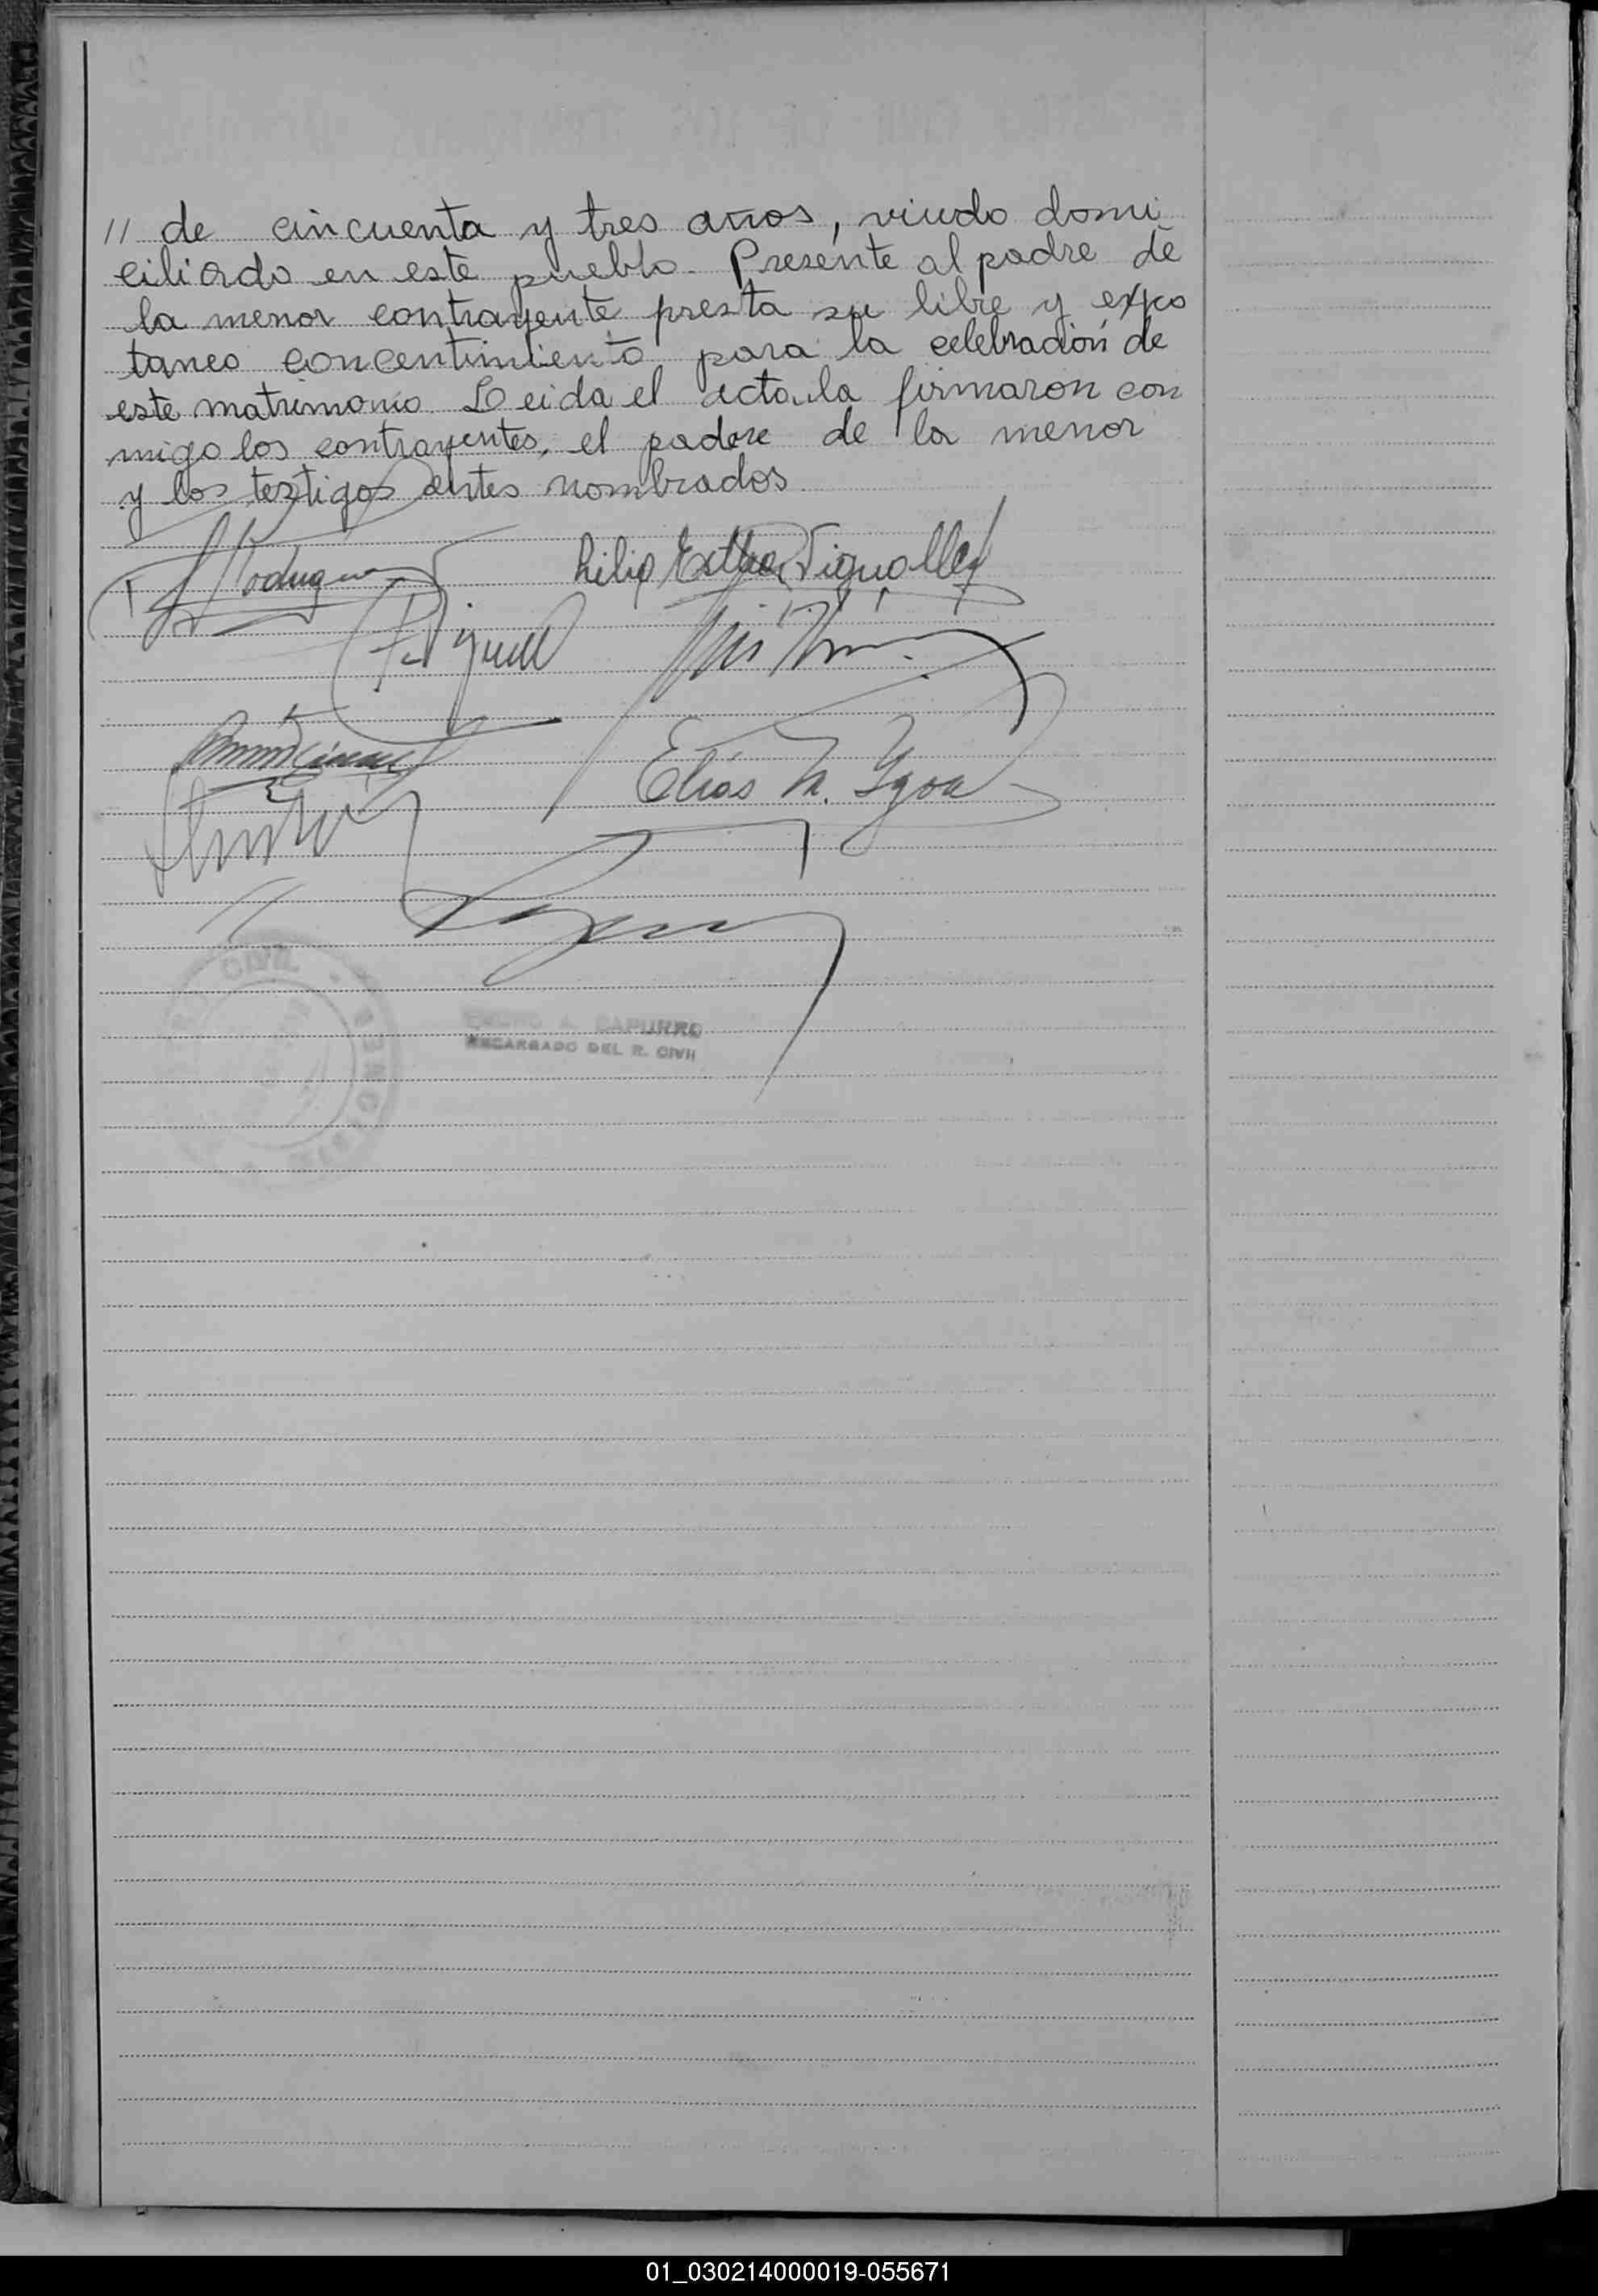 // de cincuenta y tres años, viudo domi
ciliado en este pueblo. Presente al padre de
la menor contrayente presta su libre y expo
taneo concentimiento para la celebración de
este matrimonio Leida el acta la firmaron con
migo los contrayentes, el padere de la menor
y los teztigos antes nombrados
Rodriguez Lilia Esther Vignolles
Elias M. Ygoa
CIVIL
CAPURRO
ENCARGADO DEL R. CIVIL
01_030214000019-055671